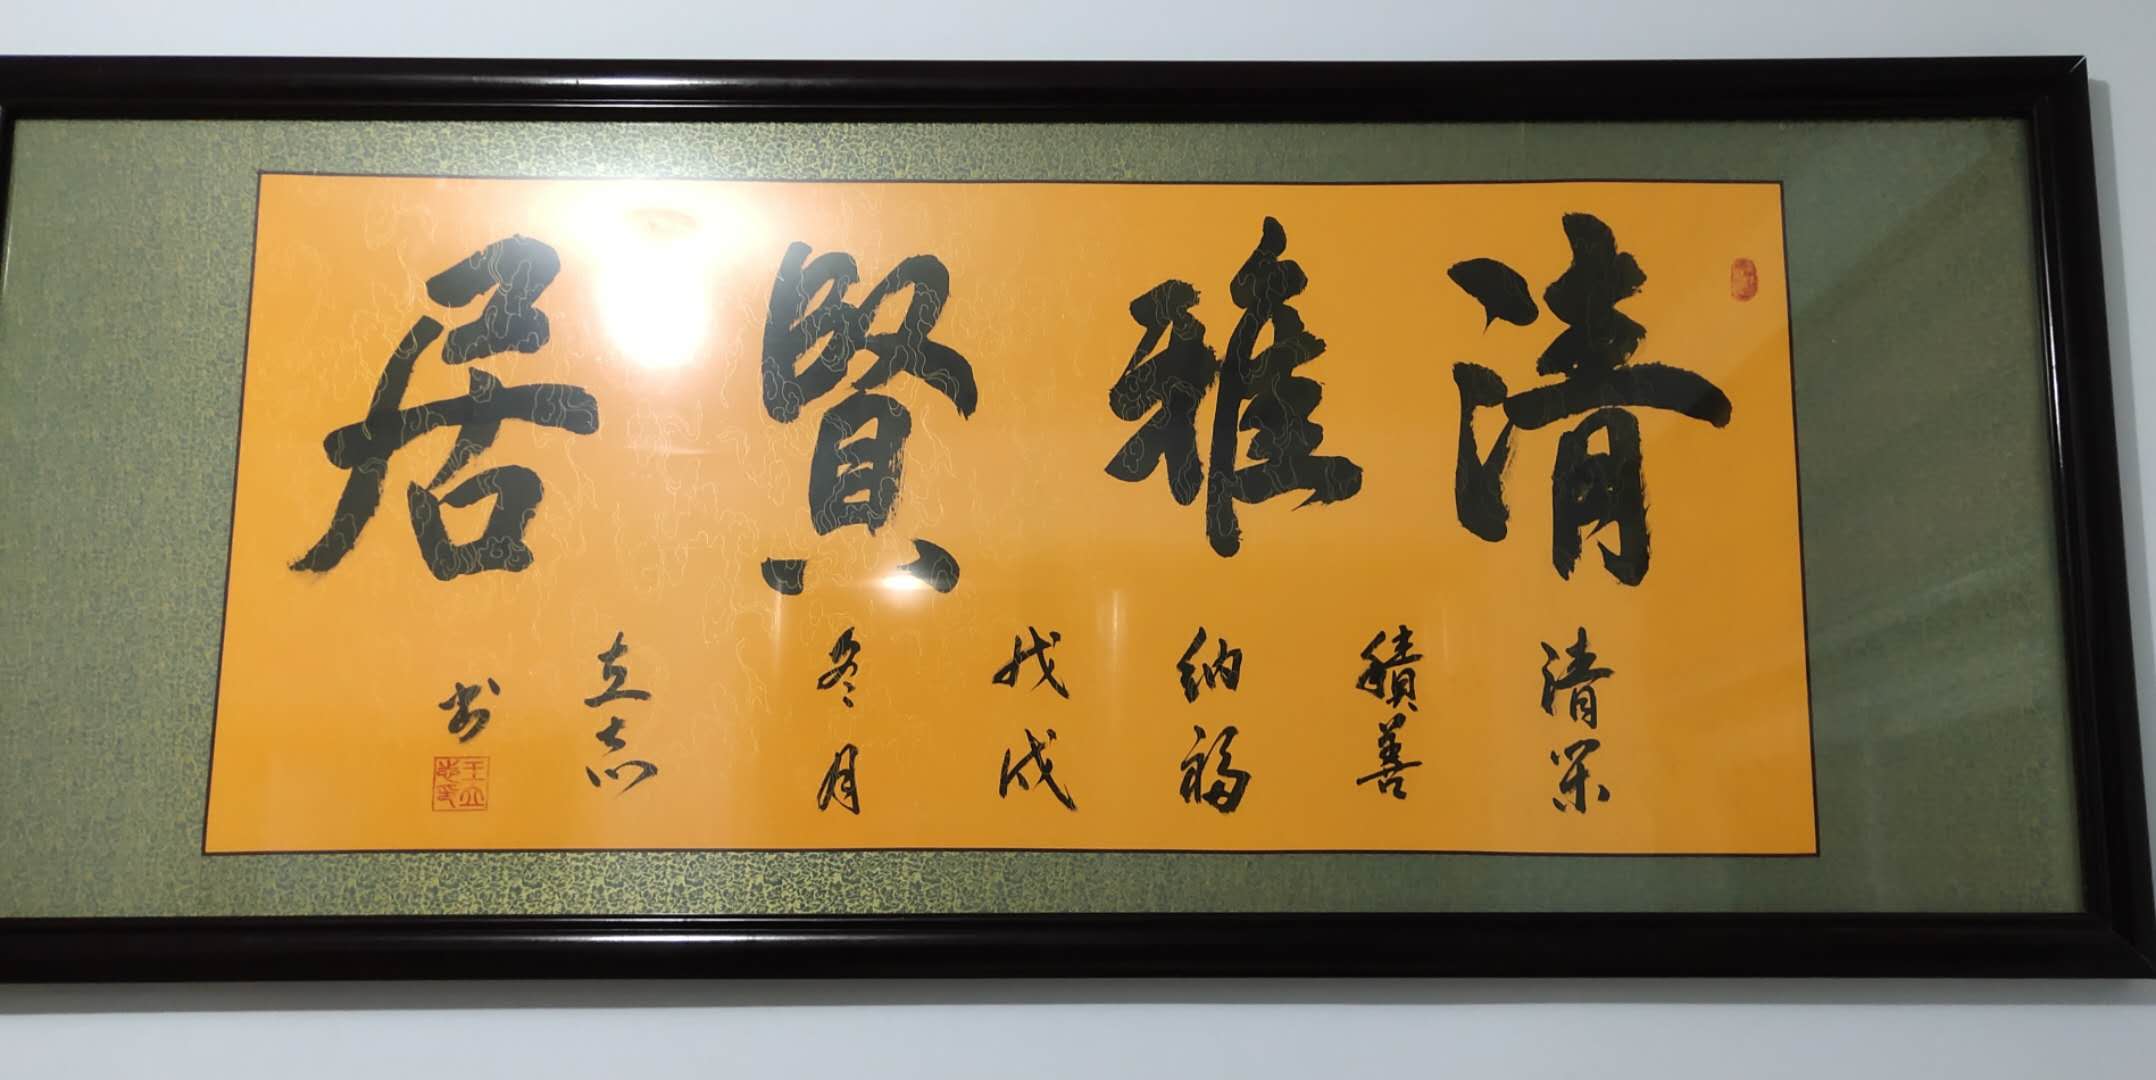 清雅賢居
清榮
積善
納福
戊戌
冬月
立志
书
王立志印